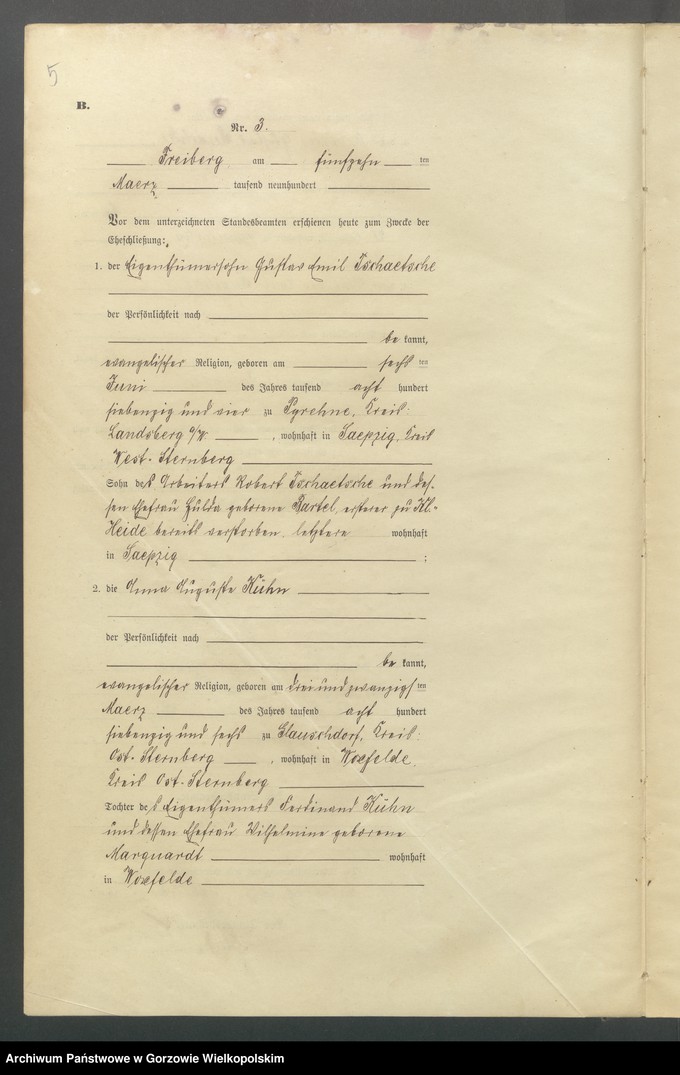 5
B.
Nr. 3.
Freiberg am fünfzehn ten
Maerz tausend neunhundert
Vor dem unterzeichneten Standesbeamten erschienen heute zum Zwecke der
Eheschließung:
1. der Eigenthümersohn Gustav Emil Tschaetsche
der Persönlichkeit nach
be kannt,
evangelischer Religion, geboren am sechs ten
Juni des Jahres tausend acht hundert
siebenzig und vier zu Pyrehne, Kreis:
Landsberg a/W. , wohnhaft in Saepzig, Kreis
West-Sternberg
Sohn des Arbeiters Robert Tschaetsche und des-
sen Ehefrau Hulda geborene Bartel, ersterer zu Kl.-
Heide bereits verstorben, letztere wohnhaft
in Saepzig ;
2. die Anna Auguste Kühn
der Persönlichkeit nach
be kannt,
evangelischer Religion, geboren am dreiundzwanzigs ten
Maerz des Jahres tausend acht hundert
siebenzig und sechs zu Glauschdorf, Kreis:
Ost-Sternberg , wohnhaft in Woxfelde,
Kreis Ost-Sternberg
Tochter des Eigenthümers Ferdinand Kühn
und dessen Ehefrau Wilhelmine geborene
Marquardt wohnhaft
in Woxfelde
Archiwum Państwowe w Gorzowie Wielkopolskim